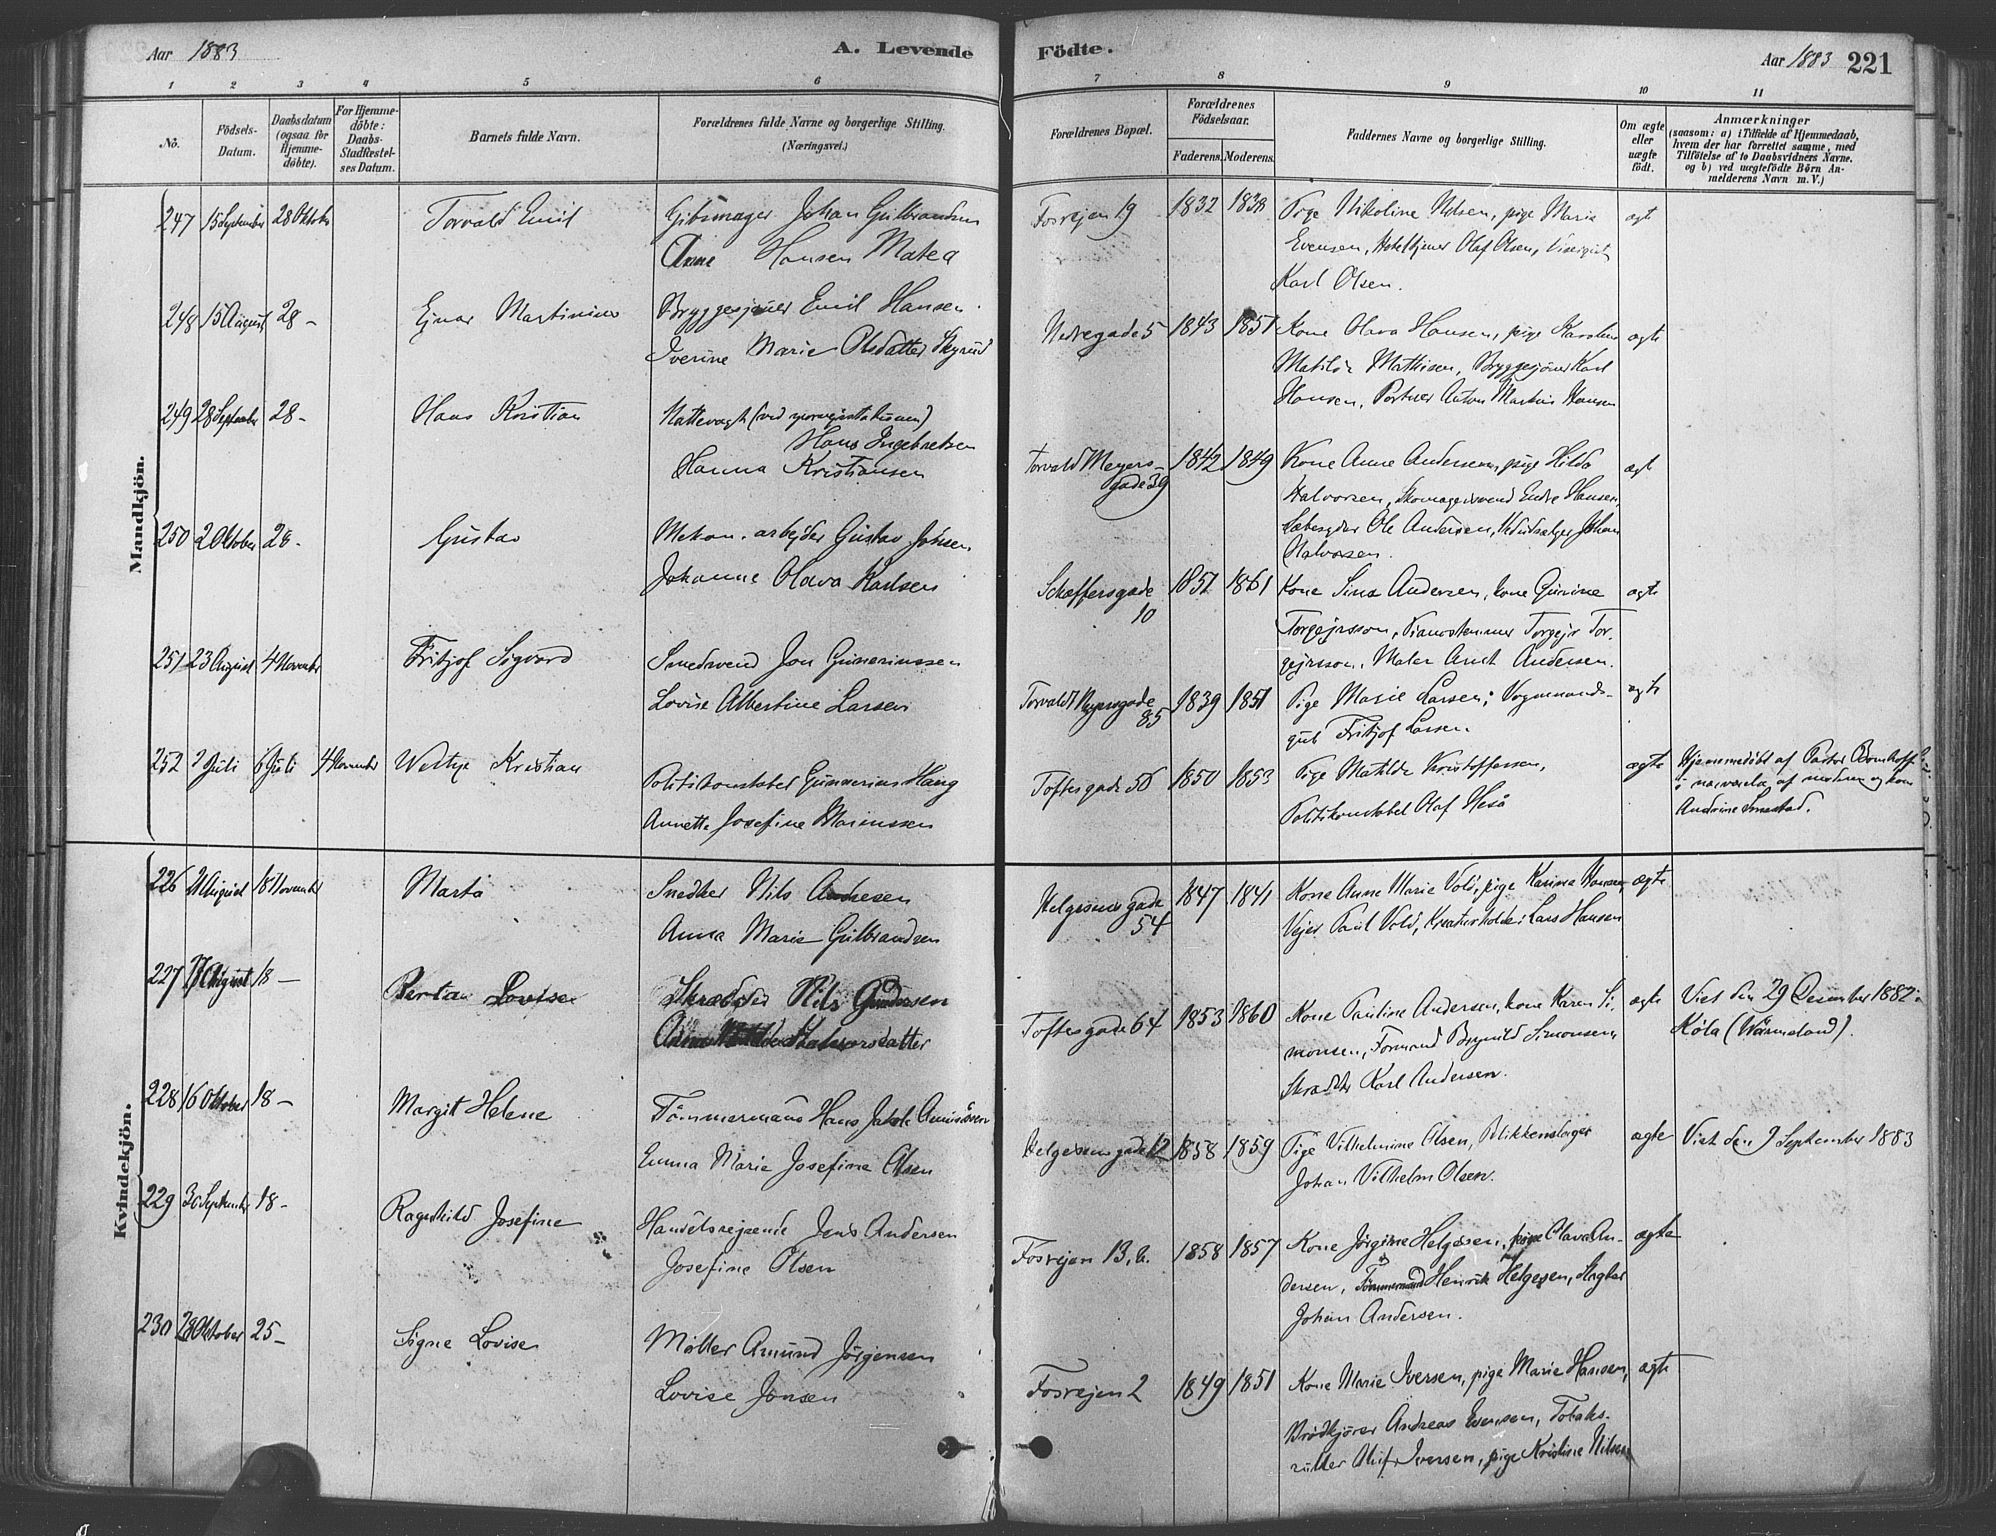 Aar 1883
A. Levende
Födte.
Aar 1883
221
1 2 3 4 5 6 7 8 9 10 11
No.
Födsels-
Datum.
Daabsdatum
(ogsaa for
Hjemme-
döbte).
For Hjemme-
döbte:
Daabs-
Stadfæstel-
ses Datum.
Barnets fulde Navn.
Forældrenes fulde Navne og borgerlige Stilling.
(Næringsvei.)
Forældrenes Bopæl.
Forældrenes
Födselsaar.
Faderens. Moderens.
Faddernes Navne og borgerlige Stilling.
Om ægte
eller
uægte
födt.
Anmærkninger
(saasom: a) i Tilfælde af Hjemmedaab,
hvem der har forrettet samme, med
Tilföielse af to Daabsvidners Navne.
og b) ved uægtefödte Börn An-
melderens Navn m. V.)
Mandkjön.
247 15 September 28 Oktober
Torvald Emil
Gibsmager Johan Gulbrandsen
Anne Hansen Matea
Fosvejen 19
1832 1838
Pige Nikoline Nelsen, pige Marie
Evensen, Hoteltjener Olaf Olsen, Visergut
Karl Olsen.
ægt
248 15 August 28 –
Ejnar Martinius
Bryggesjouer Emil Hansen
Iverine Marie Olsdatter Skyrud
Nedregade 5
1843 1851
Kone Olava Hansen, pige Karoline
Matilde Mathisen, Bryggesjouer Karl
Hansen, Portner Anton Markus Hansen
ægte
249 28 September 28 –
Hans Kristian
Nattevagt (ved sporvejsstationen)
Hans Ingebretsen
Hanna Kristiansen
Torvald Meyers-
gade 39
1842 1849
Kone Anne Andersen, pige Hilda
Halvorsen, Skomagersvend Endre Hansen,
Sæbesyder Ole Andersen, Vedudsælger Johan
Halvorsen.
ægt
250 2 Oktober 28 –
Gustav
Mekan. arbejder Gustav Johnsen
Johanne Olava Karlsen
Schæffersgade
10
1851 1861
Kone Sina Andersen, kone Gunine
Torgejrsson, Pianostemmer Torgejr Tor-
gejrsson, Maler Arnt Andersen.
ægte
251 23 August 4 November
Fritjof Sigvard
Smedsvend Jon Gunneriussen
Lovise Albertine Larsen
Torvald Meyersgade
85
1839 1851
Pige Marie Larsen; Vognmands-
gut Fritjof Larsen
ægte
252 Juli 6 Juli 4 November
Weltye Kristian
Politikonstabel Gunnerius Haug
Annette Josefine Marinssen
Toftesgade 56
1850 1853
Pige Matilde Kristoffersen,
Politikonstabel Olaf Heså
ægte
Hjemmedöbt af Pastor Bomhoff
i nærværelse af moderen og kone
Andrine Smestad.
Kvindekjön.
226 21 August 18 November
Marta
Snedker Nils Andresen
Anna Marie Gulbrandsen
Helgesens gade
54
1847 1841
Kone Anne Marie Vold, pige Karine Hansen
Vejer Paul Vold, Kreaturholder Lars Hansen
ægte
227 17 August 18 –
Berta Lovise
Skrædder Nils Gundersen
Halvorsdatter
Toftesgade 64
1853 1860
Kone Pauline Andersen, kone Karen Si-
monsen, Formand Brynild Simonsen,
Skrædder Karl Andersen.
ægte
Viet den 29 Desember 1882 i
Köla (Wärmeland).
228 16 Oktober 18 –
Margit Helene
Tömmermand Hans Jakob Amundsen
Emma Marie Josefine Olsen
Helgesens gade 12
1858 1859
Pige Vilhelmine Olsen, Blikkenslager
Johan Vilhelm Olsen.
ægte
Viet den 9 September 1883
229 30 September 18 –
Ragnhild Josefine
Handelsrejsende Jens Andersen
Josefine Olsen
Fosvejen 13, b.
1858 1857
Kone Jörgine Helgesen, pige Olava An-
dersen, Tömmermand Henrik Helgesen, Slagter
Johan Andersen.
ægte
230 28 Oktober 25 –
Signe Lovise
Möller Amund Jörgensen
Lovise Jonsen
Fosvejen 2
1849 1851
Kone Marie Iversen, pige Marie Hansen,
Brödkjörer Andreas Evensen, Tobaks-
ruller Iversen, pige Kristine Nilsen
ægte